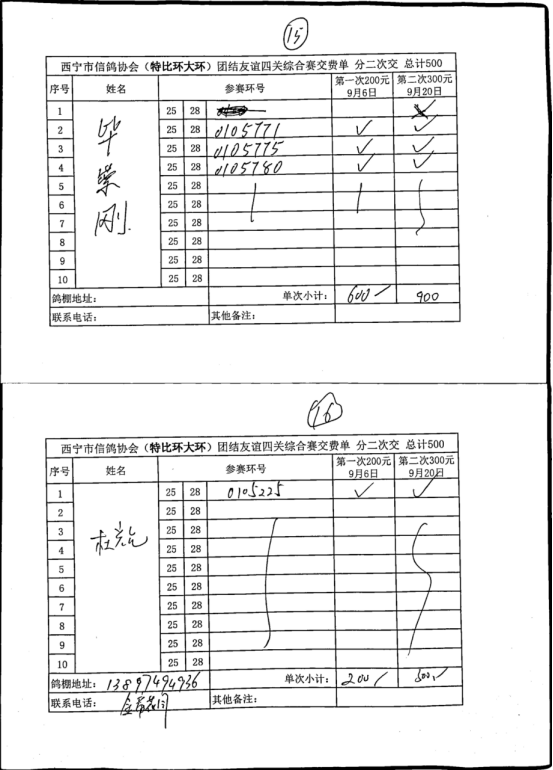 15
西宁市信鸽协会（特比环大环）团结友谊四关综合赛交费单 分二次交 总计500
序号 姓名 参赛环号 第一次200元 9月6日 第二次300元 9月20日
1 25 28
2 25 28 0105771 ✓ ✓
3 25 28 0105775 ✓ ✓
4 25 28 0105780 ✓ ✓
5 25 28
6 25 28
7 25 28
8 25 28
9 25 28
10 25 28
毕 刚
鸽棚地址： 单次小计： 600 900
联系电话： 其他备注：
16
西宁市信鸽协会（特比环大环）团结友谊四关综合赛交费单 分二次交 总计500
序号 姓名 参赛环号 第一次200元 9月6日 第二次300元 9月20日
1 25 28 0105225 ✓ ✓
2 25 28
3 25 28
4 25 28
5 25 28
6 25 28
7 25 28
8 25 28
9 25 28
10 25 28
杜
鸽棚地址：13897494936 单次小计： 200 300
联系电话： 其他备注：